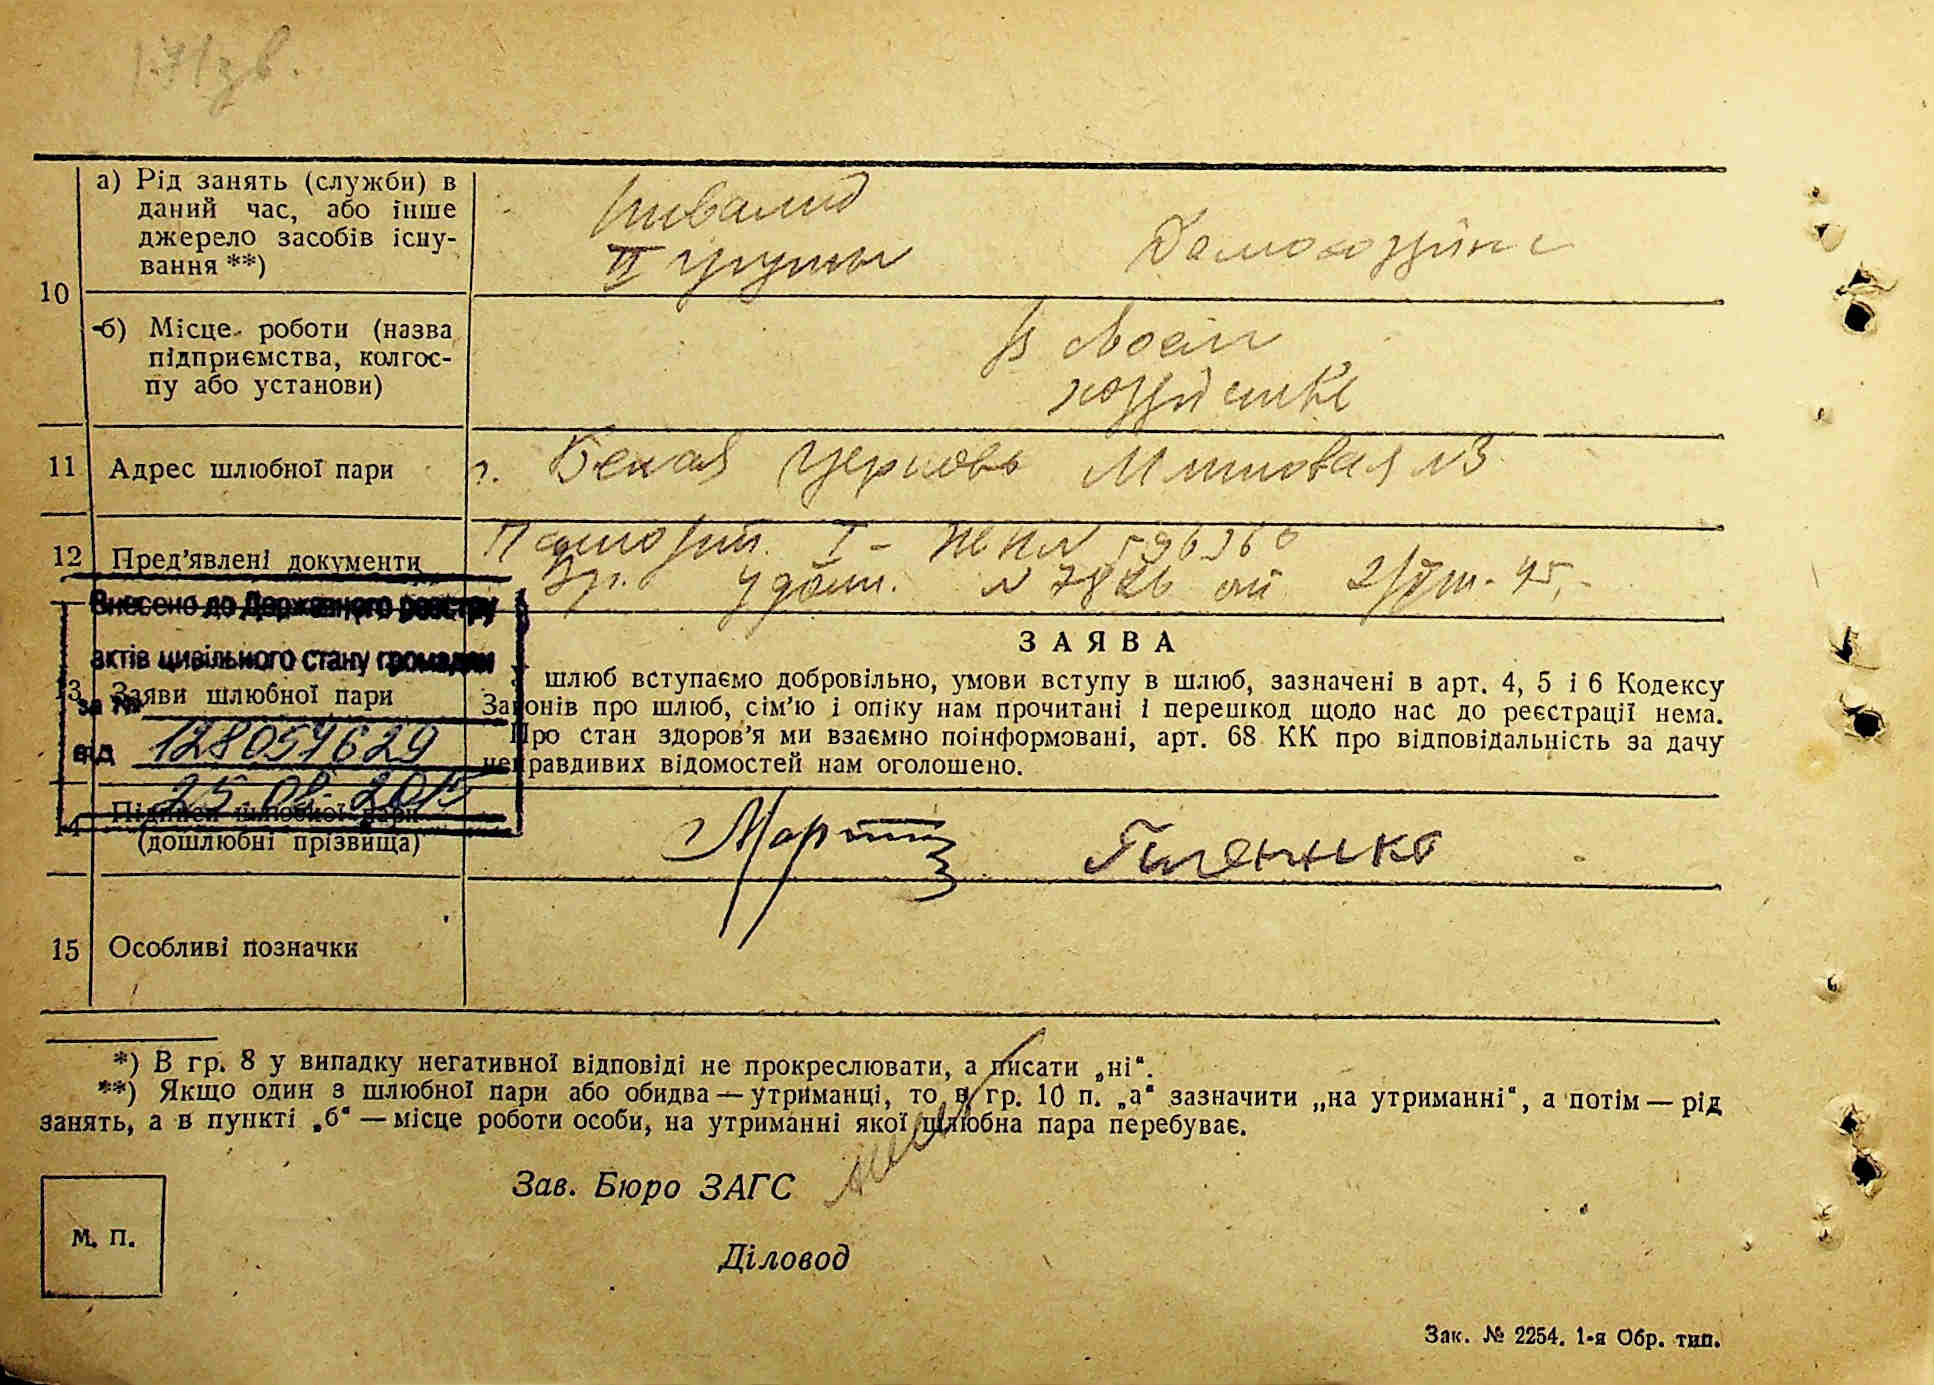 10
а) Рід занять (служби) в
даний час, або інше
джерело засобів існу-
вання **)
Инвалид
II группы
Домохозяйка
б) Місце роботи (назва
підприємства, колгос-
пу або установи)
В своем
хозяйстве
11 Адрес шлюбної пари
г. Белая Церковь № 3
12 Пред'явлені документи
Паспорт. I –
Вр. удост. № 7826 от
Внесено до Державного реєстру
актів цивільного стану громадян
за №
128057629
від 25 2015
13 Заяви шлюбної пари
ЗАЯВА
У шлюб вступаємо добровільно, умови вступу в шлюб, зазначені в арт. 4, 5 і 6 Кодексу
Законів про шлюб, сім'ю і опіку нам прочитані і перешкод щодо нас до реєстрації нема.
Про стан здоров'я ми взаємно поінформовані, арт. 68 КК про відповідальність за дачу
неправдивих відомостей нам оголошено.
14 Підписи шлюбної пари
(дошлюбні прізвища)
15 Особливі позначки
*) В гр. 8 у випадку негативної відповіді не прокреслювати, а писати „ні“.
**) Якщо один з шлюбної пари або обидва — утриманці, то в гр. 10 п. „а“ зазначити „на утриманні“, а потім — рід
занять, а в пункті „б“ — місце роботи особи, на утриманні якої шлюбна пара перебуває.
Зав. Бюро ЗАГС
М. П.
Діловод
Зак. № 2254. 1-я Обр. тип.